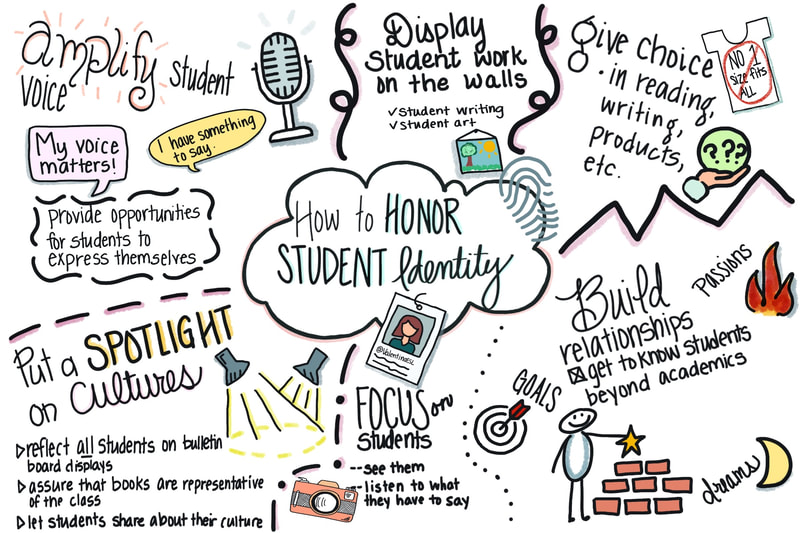 amplify
student
VOICE
My voice
matters!
I have something
to say.
Provide opportunities
for students to
express themselves
Display
Student work
on the walls
✓Student writing
✓student art
Give choice
· in reading,
writing,
Products,
etc.
NO 1
size fits
ALL
???
How to HONOR
STUDENT Identity
@ValentinaESL
Put a SPOTLIGHT
on Cultures
▷reflect all Students on bulletin
board displays
▷assure that books are representative
of the class
▷let students share about their culture
FOCUS on
Students
--see them
--listen to what
they have to say
Build
relationships
☒get to know students
beyond academics
Passions
GOALS
dreams